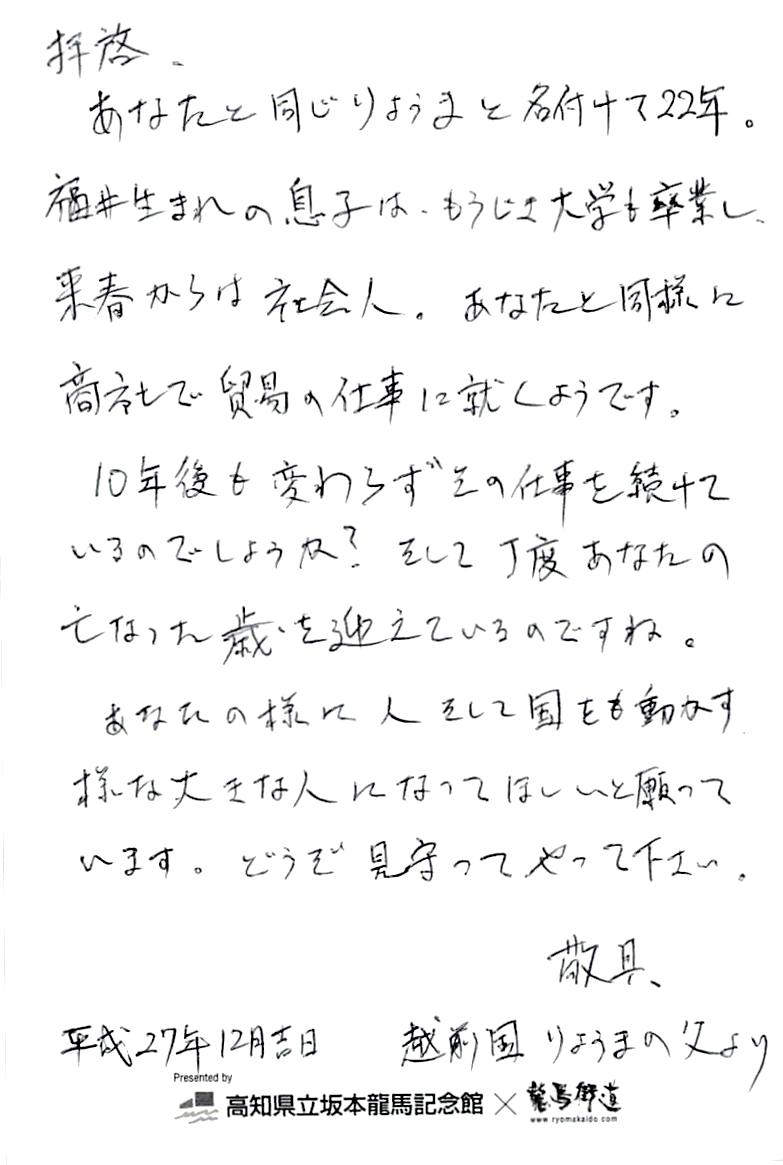 拝啓、
あなたと同じりょうまと名付けて22年。
福井生まれの息子は、もうじき大学も卒業し、
来春からは社会人。あなたと同様に
商社で貿易の仕事に就くようです。
10年後も変わらずその仕事を続けて
いるのでしょうか？そして丁度あなたの
亡なった歳を迎えているのですね。
あなたの様に人そして国をも動かす
様な大きな人になってほしいと願って
います。どうぞ見守ってやって下さい。
敬具、
平成27年12月吉日 越前国りょうまの父より
Presented by
高知県立坂本龍馬記念館×龍馬街道
www.ryomakaido.com